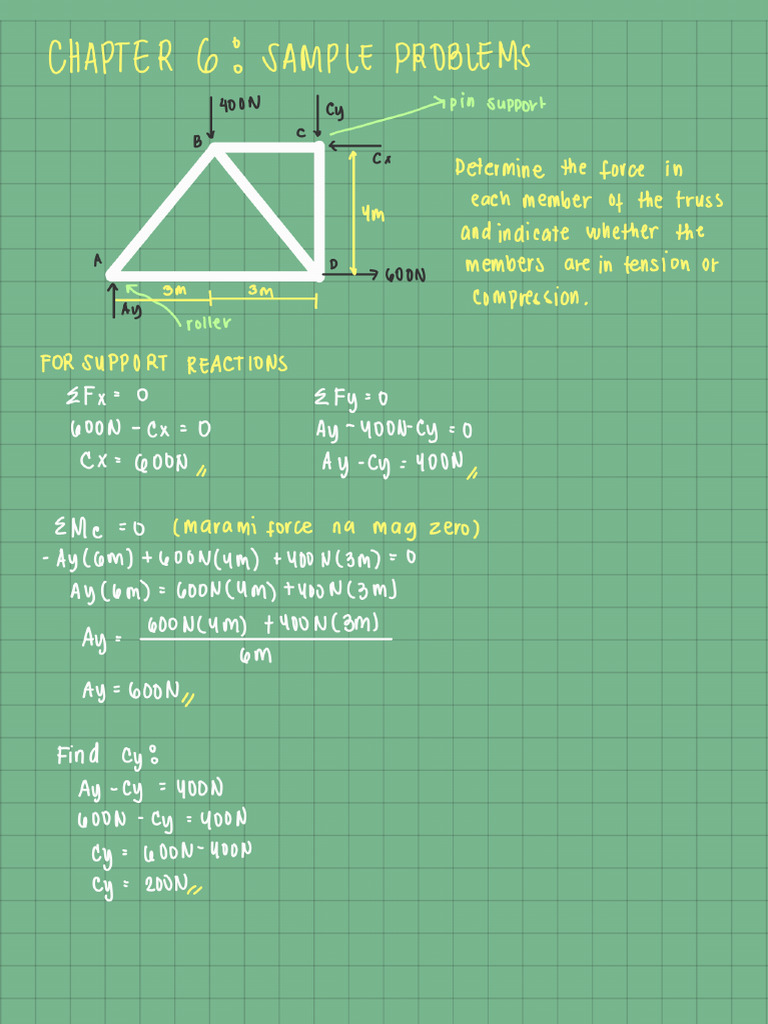 CHAPTER 6: SAMPLE PROBLEMS
400N
Cy
pin support
B
C
Cx
4m
Determine the force in
each member of the truss
and indicate whether the
members are in tension or
compression.
A
D
600N
3m
3m
Ay
roller
FOR SUPPORT REACTIONS
ΣFx = 0
600N - Cx = 0
Cx = 600N //
ΣFy = 0
Ay - 400N - Cy = 0
Ay - Cy = 400N //
ΣMc = 0 (marami force na mag zero)
- Ay(6m) + 600N(4m) + 400N(3m) = 0
Ay(6m) = 600N(4m) + 400N(3m)
Ay = 600N(4m) + 400N(3m)
6m
Ay = 600N //
Find Cy:
Ay - Cy = 400N
600N - Cy = 400N
Cy = 600N - 400N
Cy = 200N //